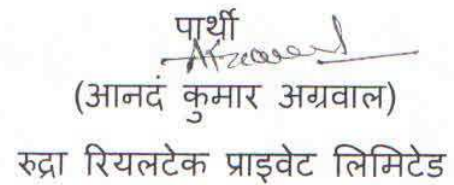 पार्थी
(आनदं कुमार अग्रवाल)
रुद्रा रियलटेक प्राइवेट लिमिटेड